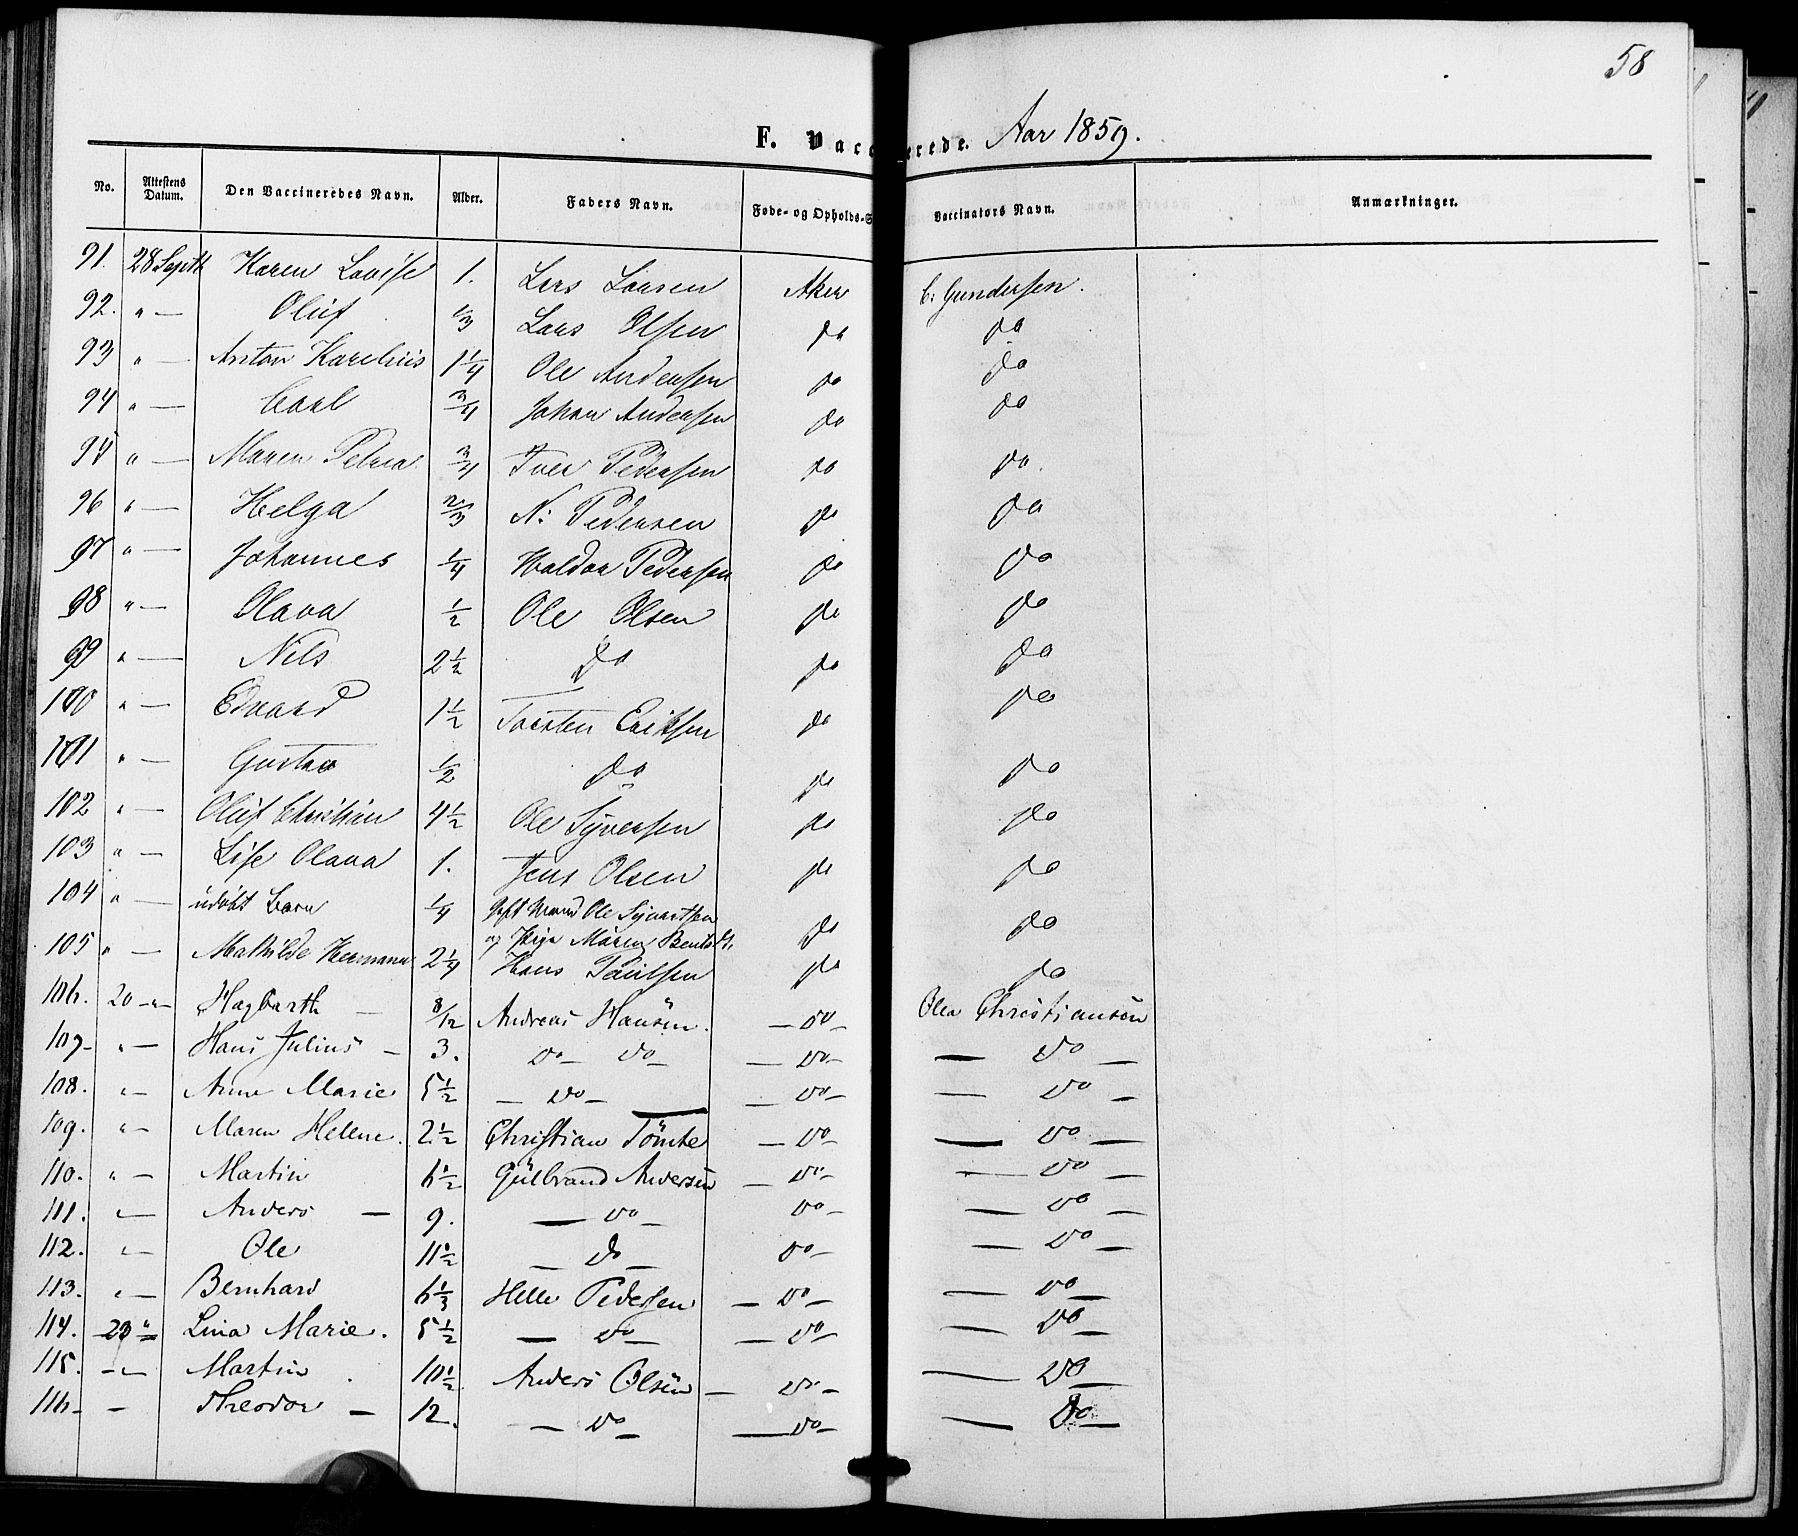 58
F. Vaccinerede. Aar 1859.
No. Attestens Datum. Den Vaccineredes Navn. Alder. Faders Navn. Føde- og Opholds-S Vaccinators Navn. Anmærkninger.
91. 28 Septb Karen Lovise 1. Lars Larsen Aker C: Gundersen.
92. " — Oluf 1/3 Lars Olsen do do
93 " — Anton Karelius 1 1/4 Ole Andersen do do
94 " — Carl 3/4 Johan Andersen do do
95 " — Maren Petrea 3/4 Iver Pedersen do do.
96 " — Helga 2/3 N: Pedersen do do
97 " — Johannes 1/4 Haldor Pedersen do do
98 " — Olava 1/2 Ole Olsen do do
99 " — Nils 2 1/2 do do do
100 " — Edvard 1 1/2 Torsten Eriksen do do
101 " — Gustav 1/2 do do do
102 " — Oluf Christian 4 1/2 Ole Syversen do do
103 " — Lise Olava 1. Jens Olsen do do
104 " — udøbt Barn 1/4 Gift Mand Ole Syvertsen do do
og Pige Maren
105 " — Mathilde Hermana 2 1/4 Hans Paulsen do do
106. 20 —"— Hagbarth — 8/12 Andreas Hansen. — do — Olea Christiansen
107 — " — Hans Julius — 3. do — do — — do — — do —
108. " — Anne Marie 5 1/2 — do — — do — — do —
109. " — Maren Helene. 2 1/2 Christian Tömte — do — — do —
110. " — Martin 6 1/2 Gulbrand Andersen — do — — do —
111. " — Anders — 9. — do — do — — do —
112. " — Ole 11 1/2 — do — do — — do —
113. " — Bernhard 6 1/3 Helle Pedersen — do — — do —
114. — 23 " — Lina Marie. 5 1/2 — do — — do — — do —
115. — " — Martin 10 1/2 Anders Olsen — do — — do —
116 — — Theodor — 12. — do — — do — — do —